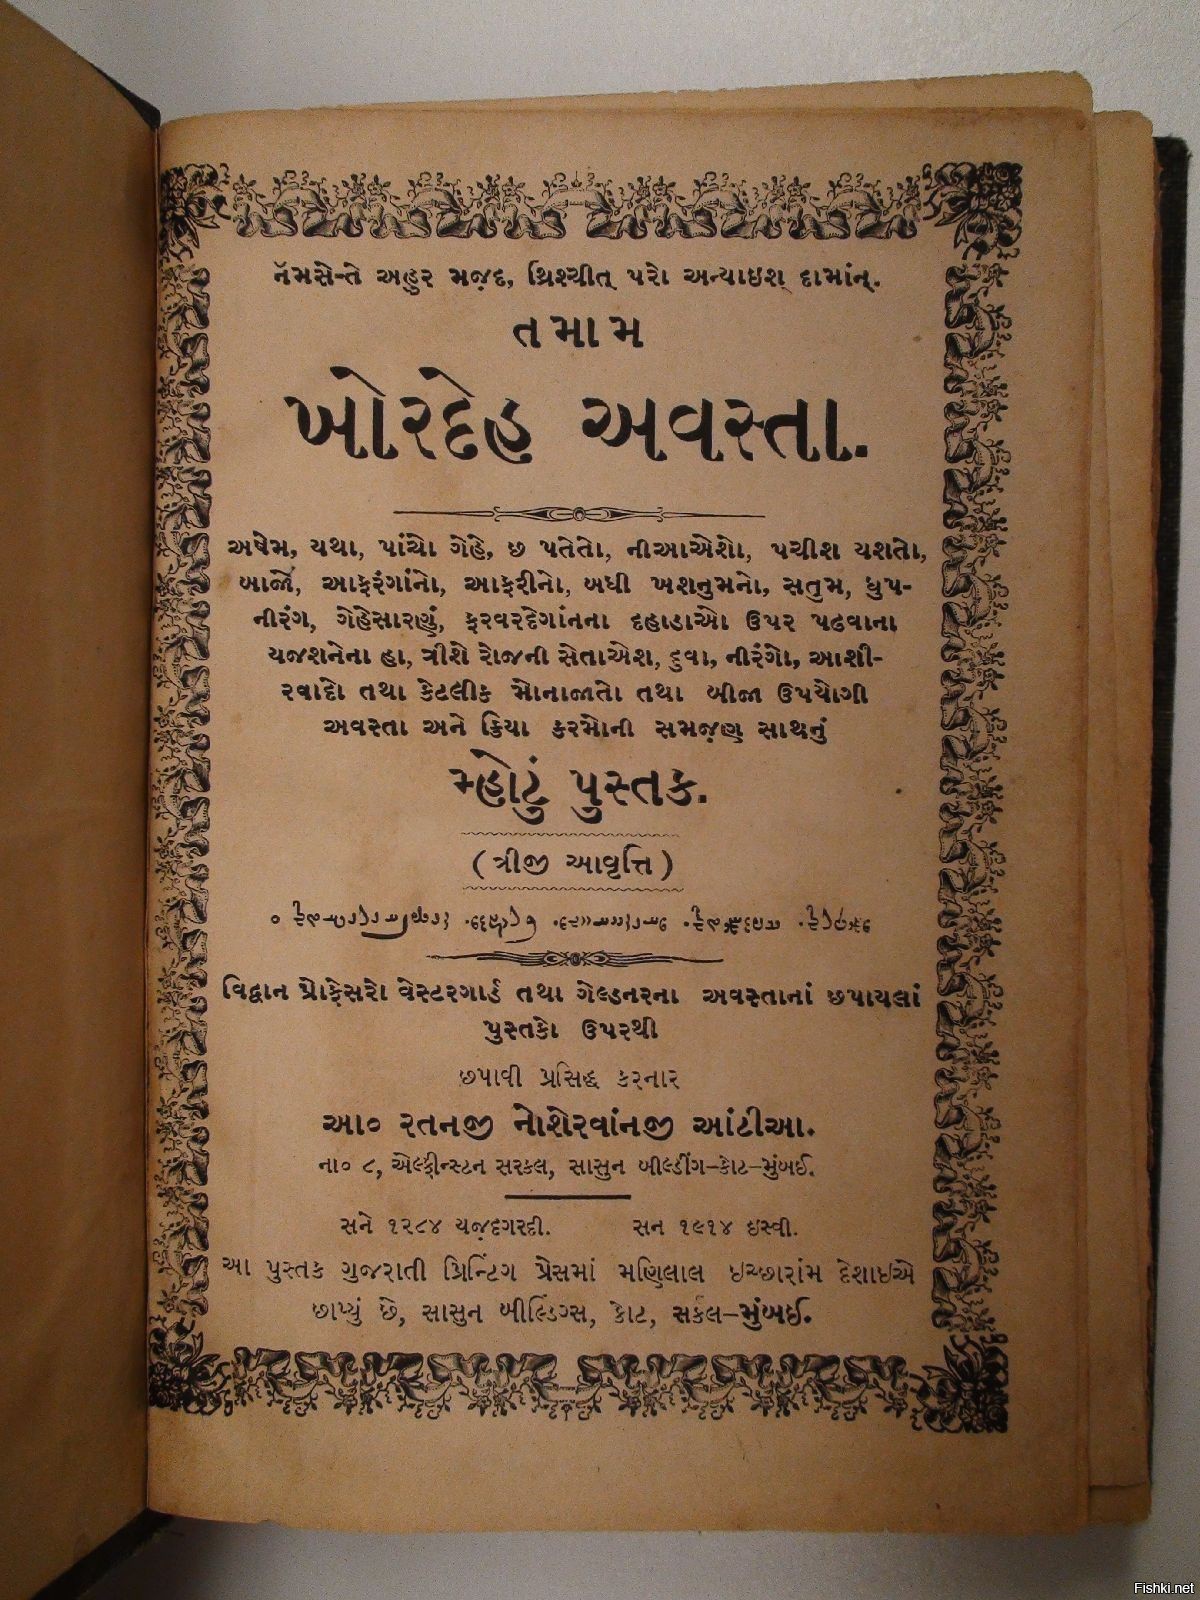 નૅમસે-તે અહુર મજ઼દ, થ્રિશ્ચીત્ પરો અન્યાઇશ્ દામાંન્.
તમામ
ખોરદેહ અવસ્તા.
અષેમ, યથા, પાંચો ગેહે, છ પતેતો, નીઆએશો, પચીશ યશતો,
બાજો, આફરંગાંનો, આફરીનો, બધી ખશનુમનો, સતુમ, ધુપ-
નીરંગ, ગેહેસારણું, ફરવરદેગાંનના દહાડાઓ ઉપર પઢવાના
યજશનેના હા, ત્રીશે રોજની સેતાએશ, દુવા, નીરંગો, આશી-
રવાદો તથા કેટલીક મોનાજાતો તથા બીજા ઉપયોગી
અવસ્તા અને ક્રિયા કરમોની સમજ઼ણ સાથનું
મ્હોટું પુસ્તક.
(ત્રીજી આવૃત્તિ)
વિદ્વાન પ્રોફેસરો વેસ્ટરગાર્ડ તથા ગેલ્ડનરના અવસ્તાનાં છપાયલાં
પુસ્તકો ઉપરથી
છપાવી પ્રસિદ્ધ કરનાર
આ૦ રતનજી નોશેરવાંનજી આંટીઆ.
ના૦ ૮, એલ્ફીન્સ્ટન સરકલ, સાસુન બીલ્ડીંગ-કોટ-મુંબઈ.
સને ૧૨૮૪ યજ઼દગરદી. સન ૧૯૧૪ ઇસ્વી.
આ પુસ્તક ગુજરાતી પ્રિન્ટિંગ પ્રેસમાં મણિલાલ ઇચ્છારાંમ દેશાઇએ
છાપ્યું છે, સાસુન બીલ્ડિંગ્સ, કોટ, સર્કલ-મુંબઈ.
Fishki.net